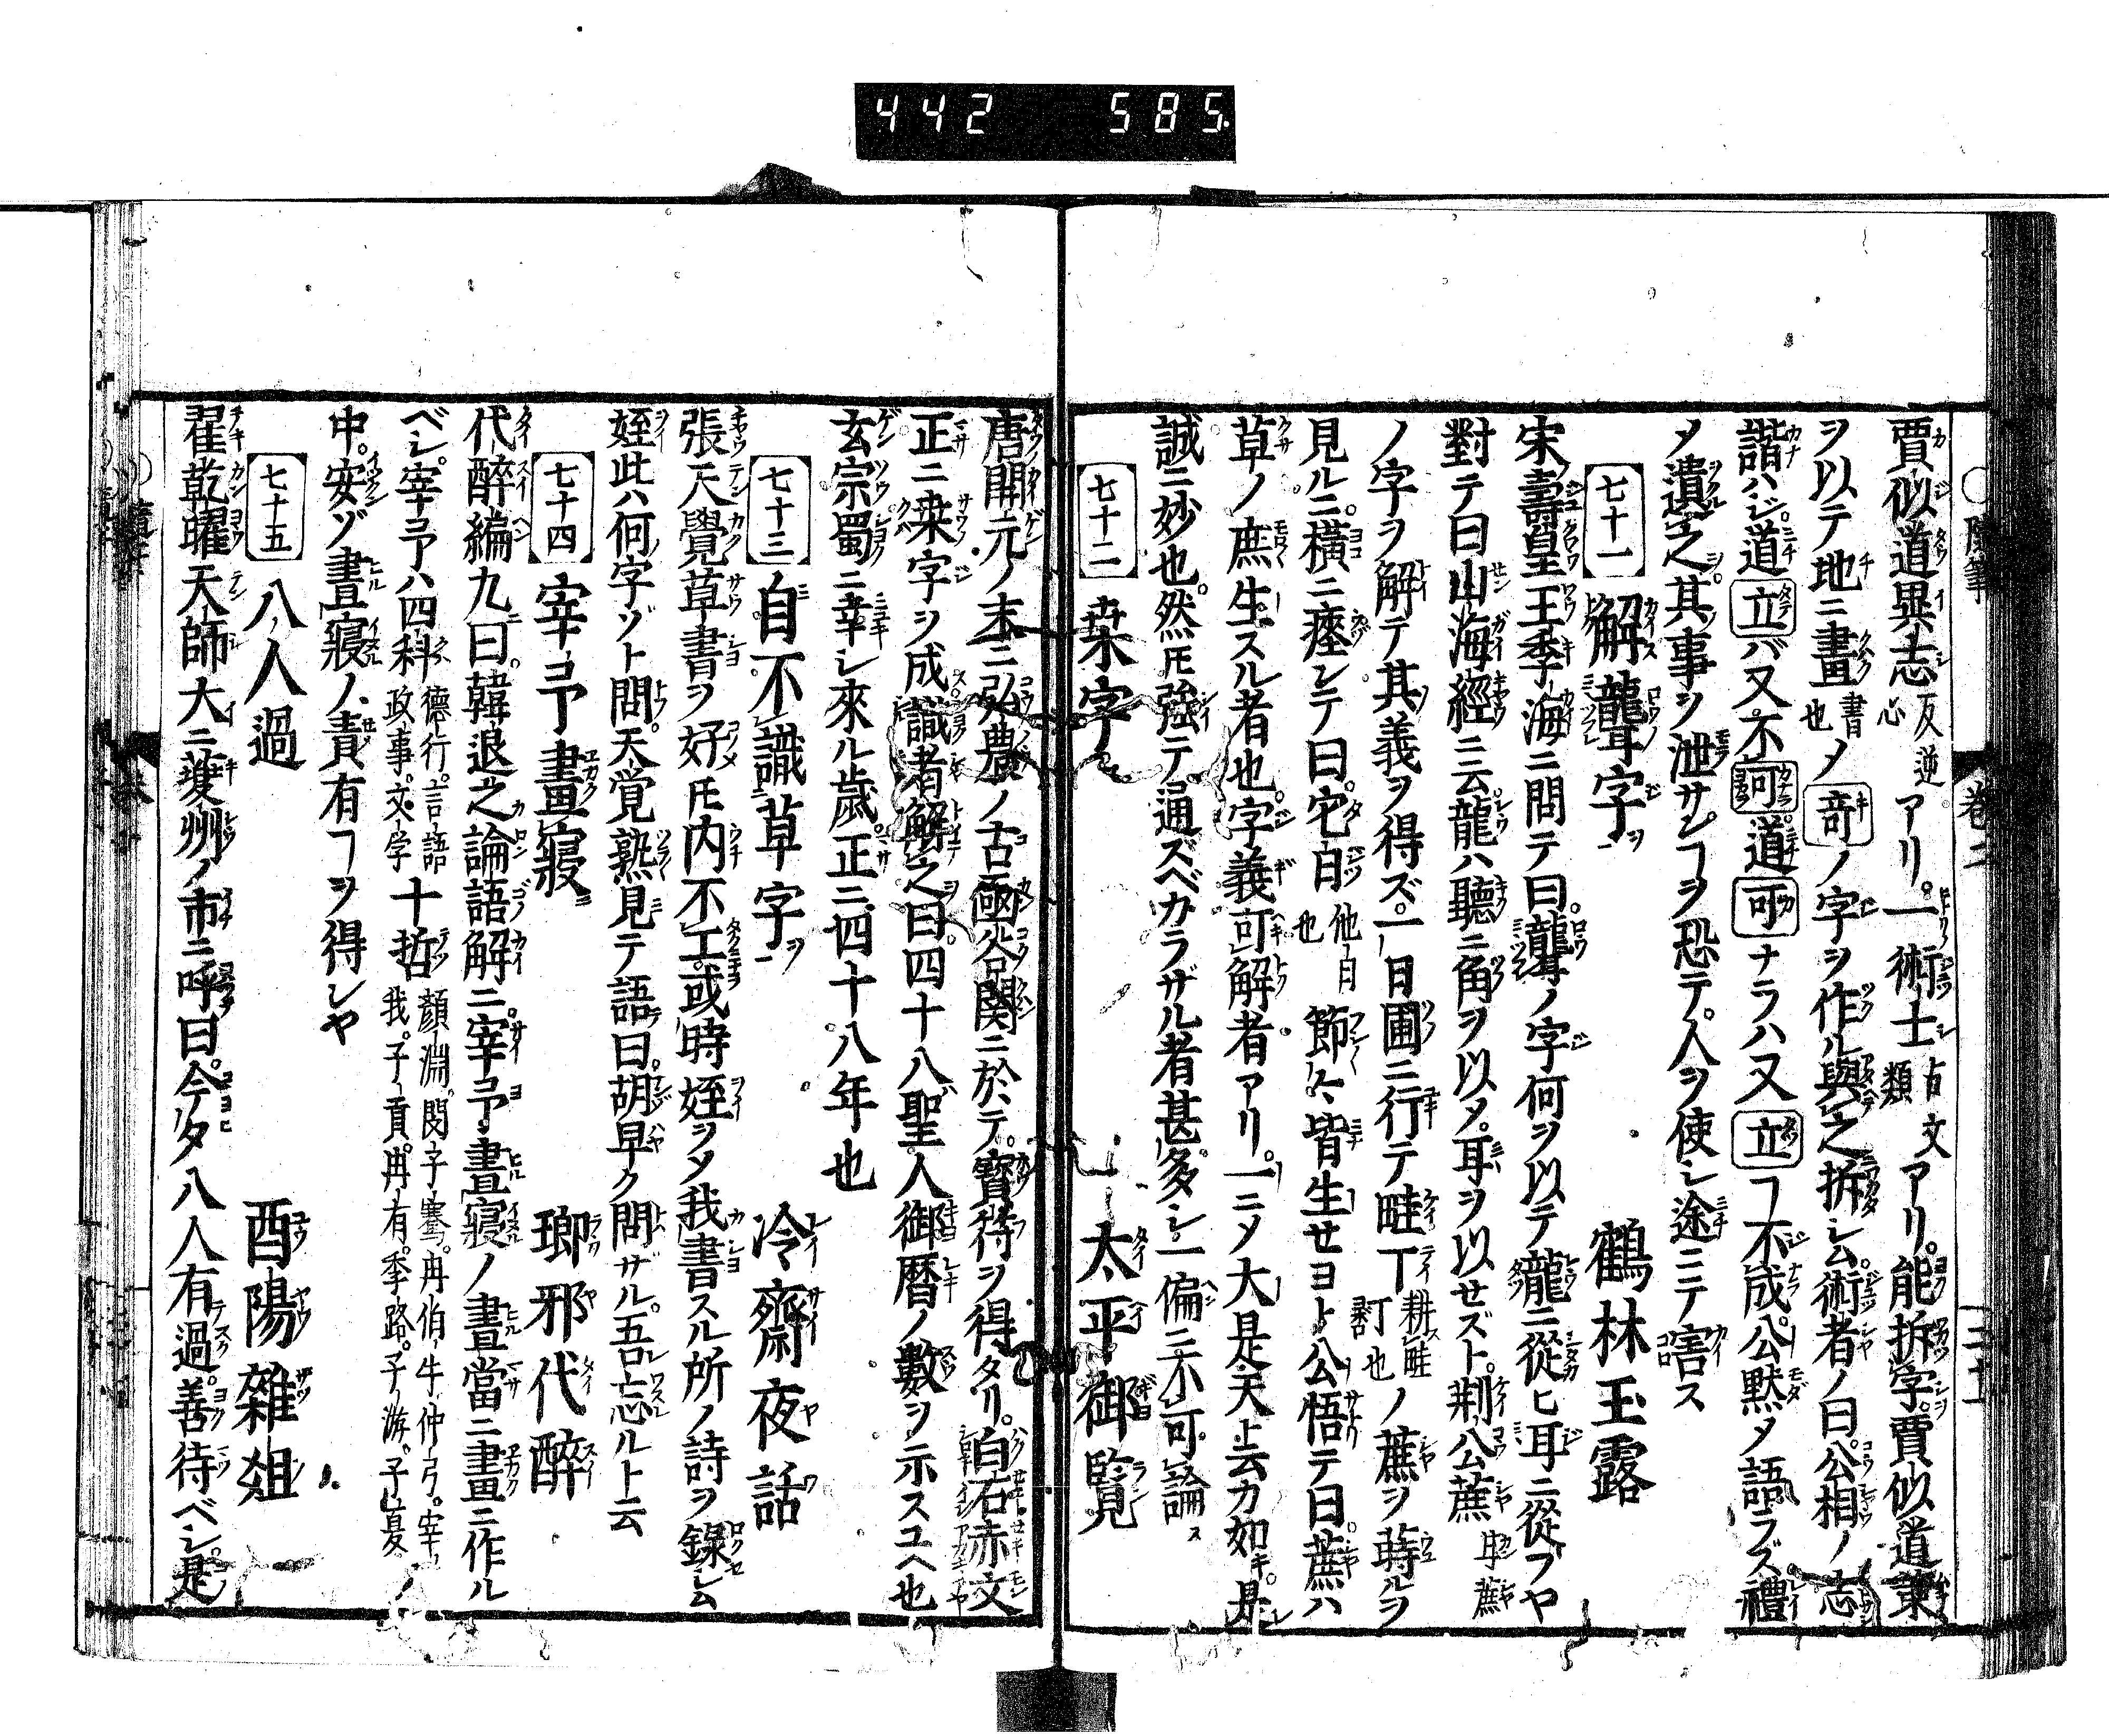 442 585.
賈似道異志反逆心アリ。一術士占文類アリ。能拆字。賈似道策
ヲ以テ地ニ畫書也メ奇ノ字ヲ作ル與之拆シム術者ノ曰公相ノ志
諧ハジ。道立バ又不可道可ナラハ又立ヿ不成公默メ語ラズ禮
メ遺之其事ヲ泄サンヿヲ恐テ。人ヲ使シ途ニテ害ス
七十一 解聾字 鶴林玉露
宋壽皇王季海ニ問テ曰。聾ノ字何ヲ以テ龍ニ從ヒ耳ニ從フヤ
對テ曰山海經ニ云龍ハ聽ニ角ヲ以メ。耳ヲ以セズト。荆公蔗
ノ字ヲ解テ其義ヲ得ズ。一日圃ニ行テ畦丁ノ蔗ヲ蒔ルヲ
見ルニ。橫ニ瘞レテ曰。它日他日也節々皆生セヨト公悟テ曰蔗ハ
草ノ庶生スル者也。字義可解者アリ。一ニメ大是天ト云カ如キ。是
誠ニ妙也。然ㇳモ強テ通ズベカラザル者甚多シ一偏ニ不可論
七十二 桒字 太平御覧
唐開元ノ末ニ弘農ノ古凾谷関ニ於テ。寳符ヲ得タリ。白石赤文
正ニ桒字ヲ成識者解之曰。四十八聖人御暦ノ數ヲ示スユヘ也
玄宗蜀ニ幸シ來ル歳正ニ四十八年也
七十三 自不識草字 冷齋夜話
張天覺草書ヲ好ㇳモ内不工。或時姪ヲメ我書スル所ノ詩ヲ錄シム
姪此ハ何字ゾト問。天覚熟見テ語曰。胡早ク問ザル。吾忘ルト云
七十四 宰予畫寢 瑯邪代醉
代醉編九曰。韓退之論語解ニ。宰予晝寢ノ晝當ニ畫ニ作ル
ベシ。宰予ハ四科德行。言語政事。文学十哲顏淵。閔子騫。冉伯牛。仲弓。宰我。子貢。冉有。季路。子游。子夏ノ
中。安ゾ晝寢ノ責有ヿヲ得シヤ
七十五 八人過 酉陽雜爼
翟乾曜天師大ニ夔州ノ市ニ呼曰。今夕八人有過。善待ベシ。是